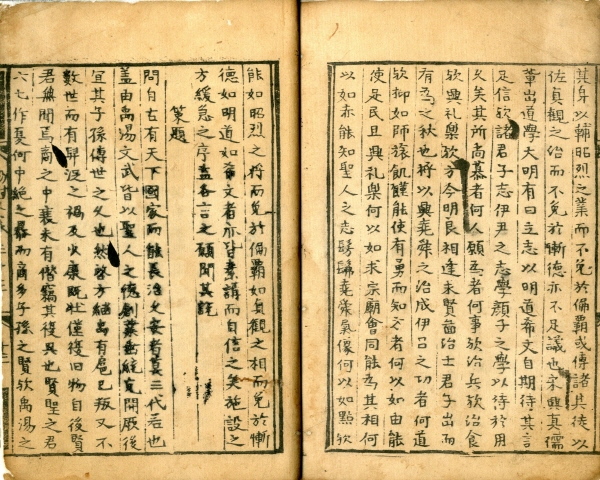 其身以輔昭烈之業而不免於偏霸或傳諸其徒以
佐貞觀之治而不免於慚德亦不足議也宋興真儒
輩出道學大明有曰立志以明道希文自期待其言
足信歟諸君子志伊尹之志學顏子之學以待於用
久矣其所尚慕者何人願爲者何事欲治兵欲治食
欲興禮樂歟方今明良相逢未賢啚治士君子出而
有爲之秋也將以興堯舜之治成伊呂之功者何道
歟抑如師旅飢饉能使有勇而知方者何以如由能
使足民且興禮樂何以如求宗廟會同能爲其相何
以如赤能知聖人之志髣髴堯舜氣像何以如點歟
能如昭烈之將而免於偏霸如貞觀之相而免於慚
德如明道如希文者亦皆素講而自信之矣施設之
方緩急之序盍各言之願聞其詳
策題
問自古有天下國家而能長治久安者莫三代若也
盖由禹湯文武皆以聖人之德創業垂統克開厥後
宜其子孫傳世之久也然啓方繼禹有扈已叛又不
數世而有羿浞之禍及少康旣壯僅復旧物自後賢
君無聞焉商之中衰未有僭竊其復興也賢聖之君
六七作夏何中絶之暴而商多子孫之賢歟禹湯之